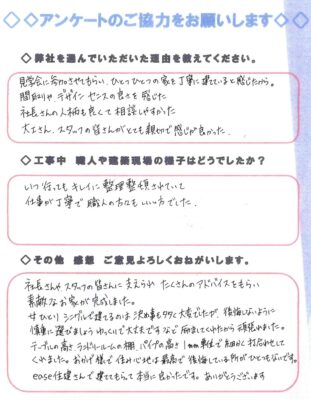 ◇◇アンケートのご協力をお願いします◇◇
◇弊社を選んでいただいた理由を教えてください。
見学会に参加させてもらい、ひとつひとつの家を丁寧に建てていると感じたから。
間取りや、デザイン センスの良さを感じた
社長さんの人柄も良くて相談しやすかった
大工さん、スタッフの皆さんがとても親切で感じが良かった。
◇工事中 職人や建築現場の様子はどうでしたか？
いつ行ってもキレイに整理整頓されていて
仕事が丁寧で職人の方々もいい方でした。
◇その他 感想 ご意見よろしくおねがいします。
社長さんやスタッフの皆さんに支えられ たくさんのアドバイスをもらい
素敵なお家が完成しました。
ひとり シングルで建てるのは 決め事も多く大変でしたが、後悔しないように
慎重に選びましょう ゆっくりで大丈夫です など 励ましてくれたから頑張れました。
テーブルの高さ ランドリールームの棚、パイプの高さ 1mm単位で細かく打合わせして
くれました。おかげ様で住み心地は最高で後悔している所がひとつもないです。
ease住建さんで建ててもらって本当に良かったです。ありがとうございます